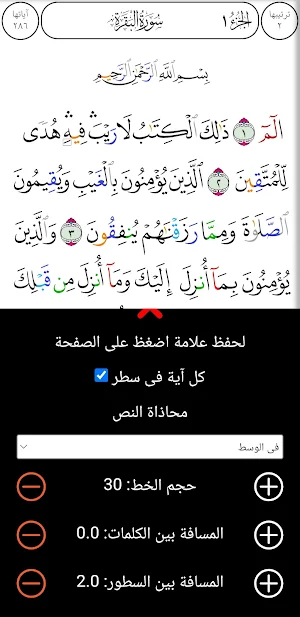 ترتيبها
٢
الجزء ١
سورة البقرة
آياتها
٢٨٦
بِسْمِ ٱللَّهِ ٱلرَّحْمَٰنِ ٱلرَّحِيمِ
الٓمٓ ١ ذَٰلِكَ ٱلْكِتَٰبُ لَا رَيْبَ ۛ فِيهِ ۛ هُدًى
لِّلْمُتَّقِينَ ٢ ٱلَّذِينَ يُؤْمِنُونَ بِٱلْغَيْبِ وَيُقِيمُونَ
ٱلصَّلَوٰةَ وَمِمَّا رَزَقْنَٰهُمْ يُنفِقُونَ ٣ وَٱلَّذِينَ
يُؤْمِنُونَ بِمَآ أُنزِلَ إِلَيْكَ وَمَآ أُنزِلَ مِن قَبْلِكَ
لحفظ علامة اضغظ على الصفحة
كل آية فى سطر
محاذاة النص
فى الوسط
حجم الخط: 30
المسافة بين الكلمات: 0.0
المسافة بين السطور: 2.0